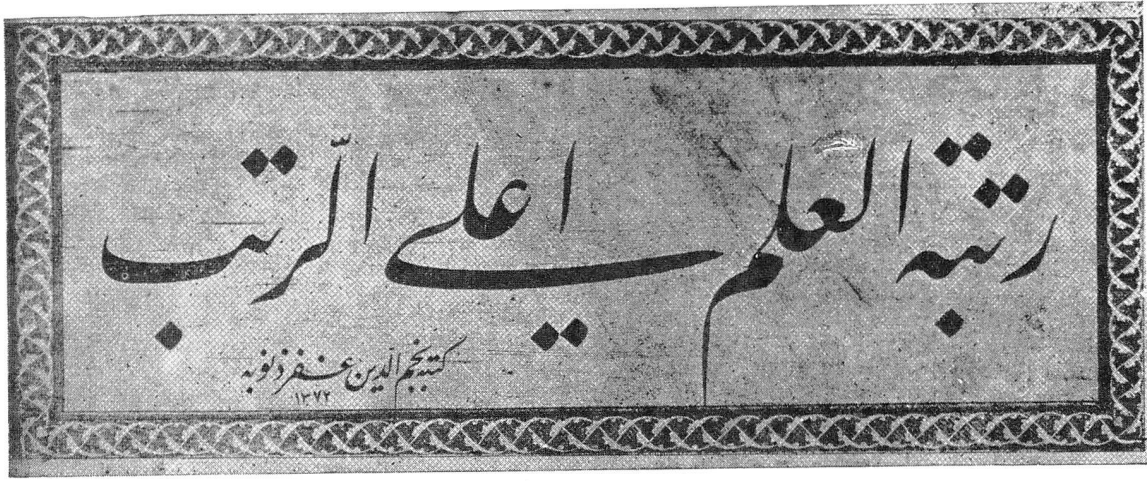 رتبة العلم اعلى الرّتب
كتبه نجم الدين غفر ذنوبه
١٣٧٢